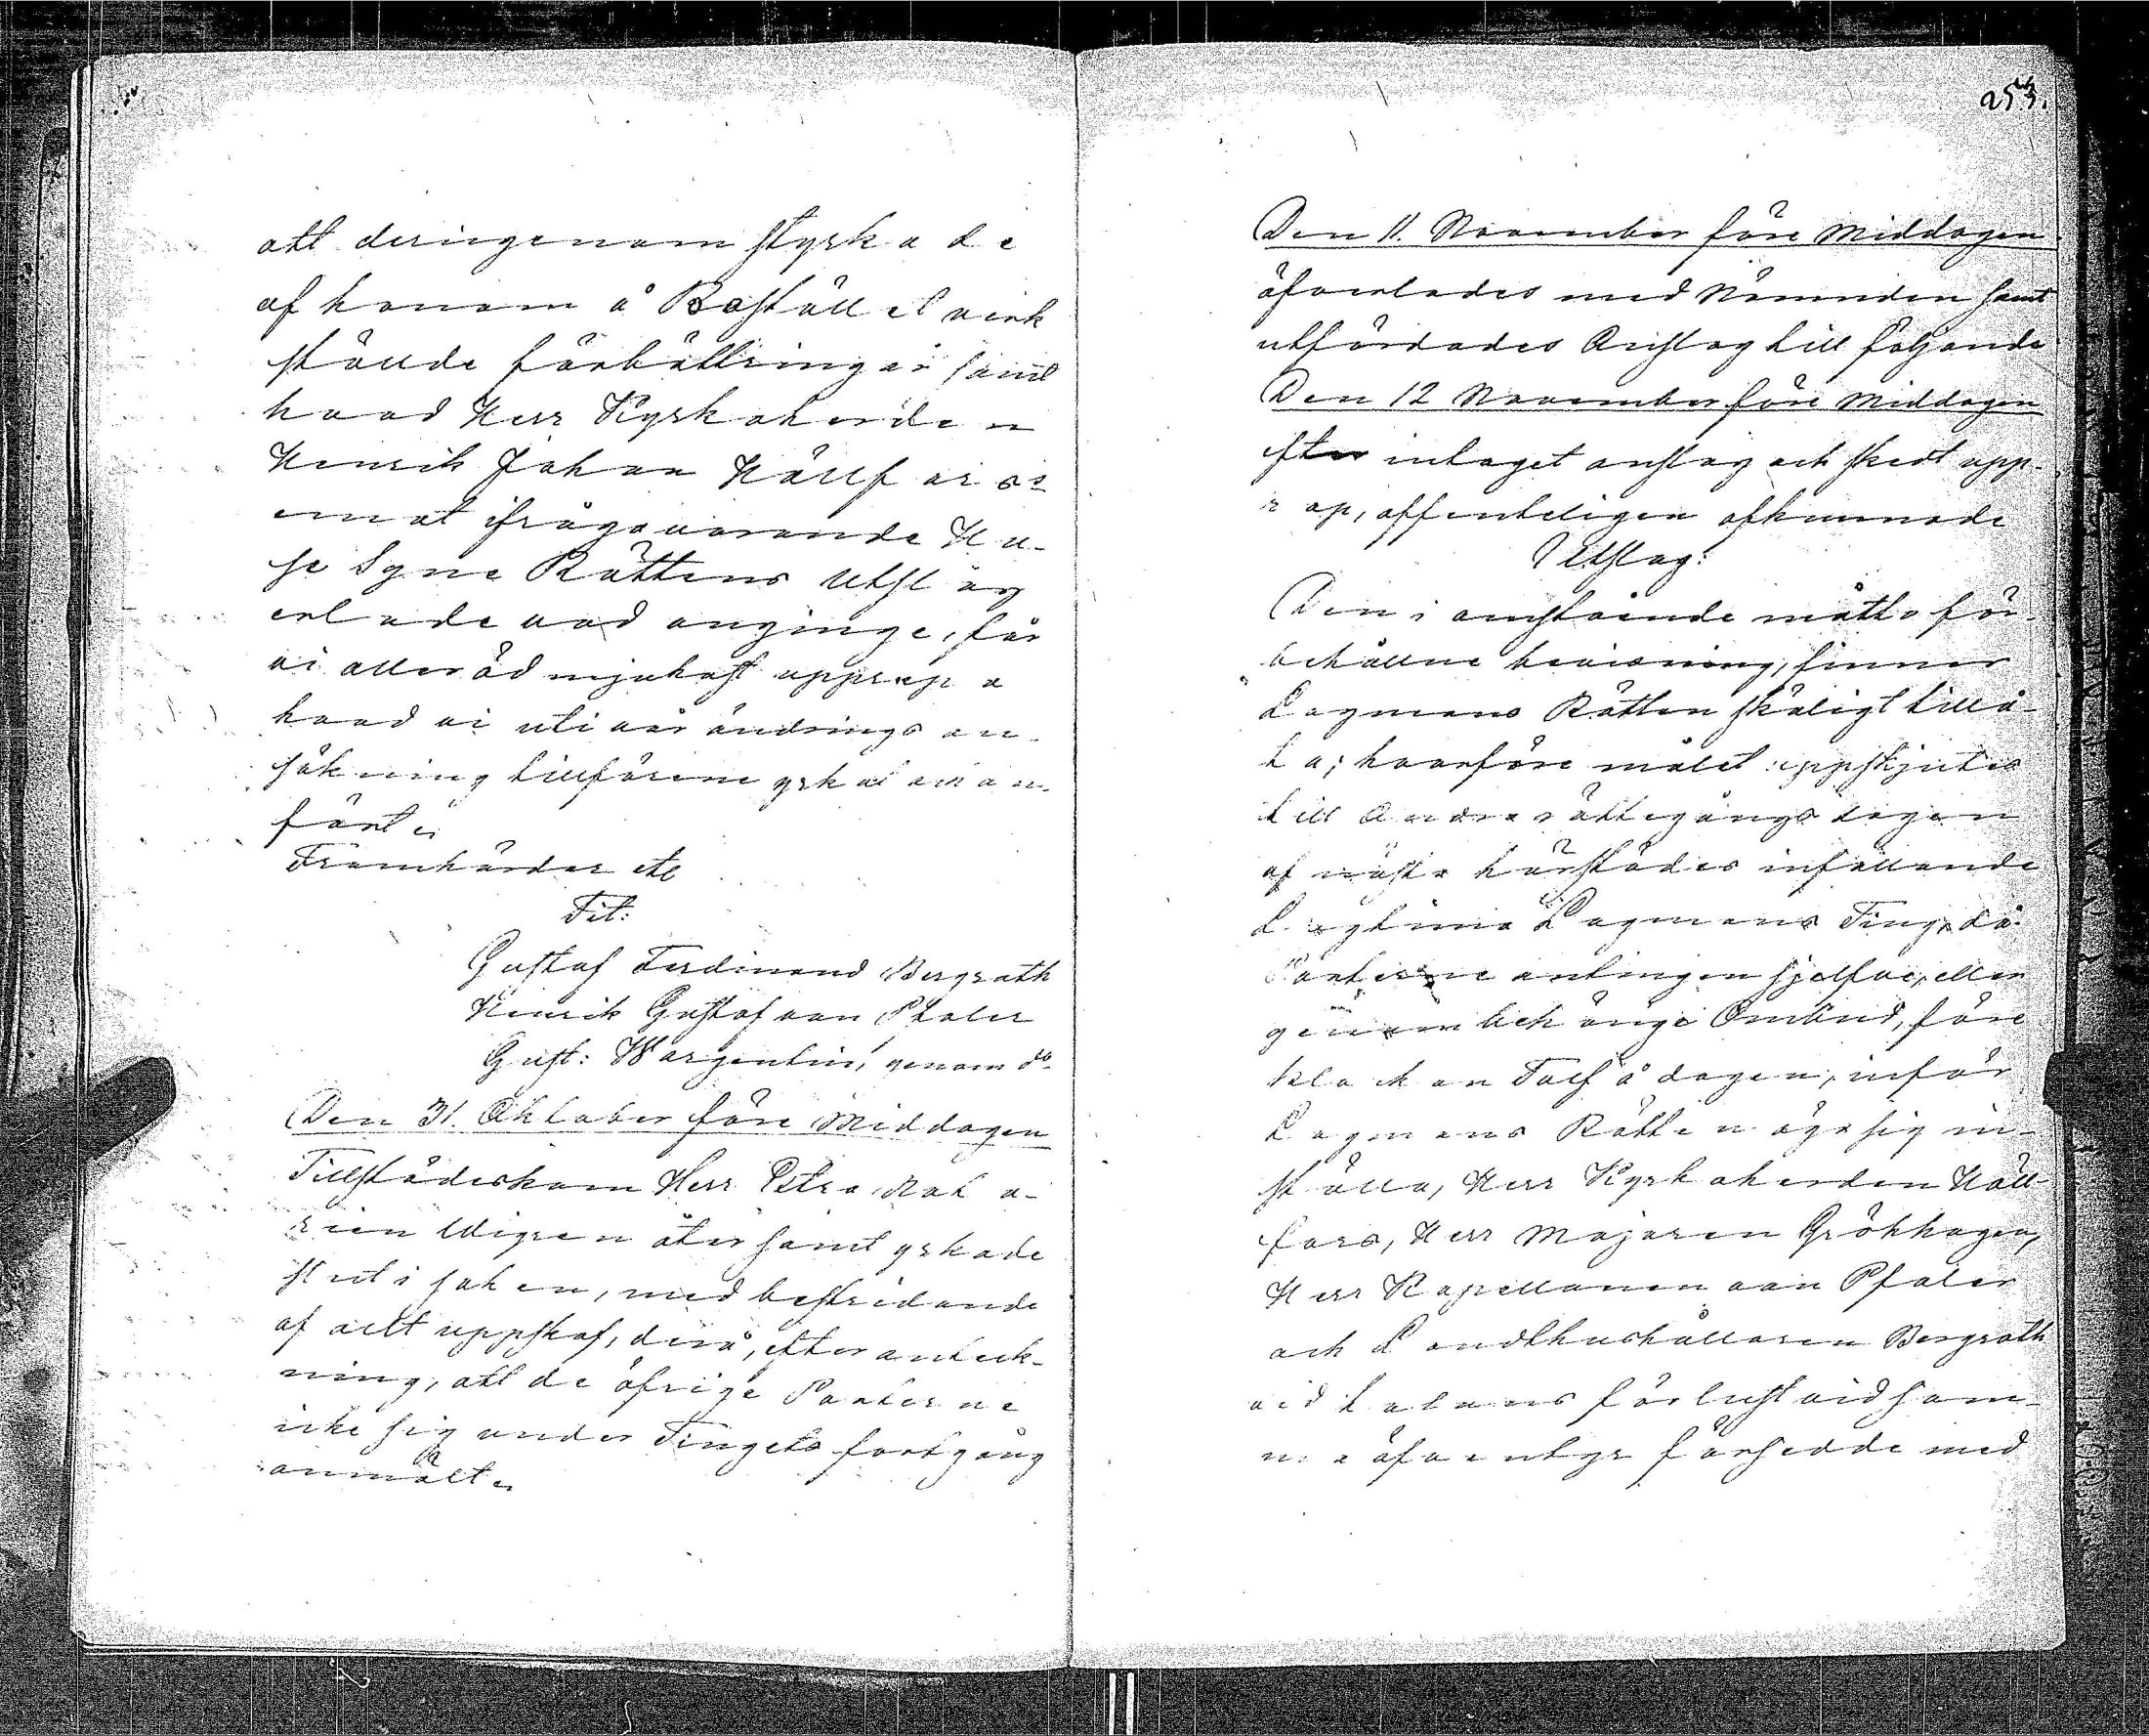 att derigenom styrkade
af honom å Bostället verk
ställde förbättringar samt
hvad Herr Kyrkoherden
Henrik Johan Hällfors
emot ifrågavarande Hu-
se Syne Rättens Utslag
erlade vad anginge, får
vi allerödmjukast upprepa
hvad vi uti vår ändrings an-
sökning tillförene yrkat och an-
fört
Framhärdar etc
Tit:
Gustaf Ferdinand Bergroth
Henrik Gustaf von Pfaler
Gust: Wargentin, genom do
Den 31. Oktober före Middagen
Tillstädeskom Herr Extra Nota-
rien Wigren åter samt yrkade
slut i saken, med bestridande
af allt uppskof, derå, efter anteck-
ning, att de öfrige Parterne
icke sig under Tingets fortgång
anmält
253.
Den 11. November före Middagen
öfverlades med Nämnden samt
utfärdades Anslag till följande
Den 12 November före Middagen
efter intaget anslag och skedt upp-
rop, offenteligen afkunnade
Utslag:
Den i omstående måtto för-
behållne bevisning, finner
Lagmans Rätten skäligt tillå-
ta; hvarföre målet uppskjutes
till Andra rättegångs dagen
af nästa härstädes infallande
Lagtima Lagmans Ting, då
Parterne antingen sjelfve, eller
genom behörige Ombud, före
klockan Tolf å dagen, inför
Lagmans Rätten äge sig in-
ställa, Herr Kyrkoherden Häll-
fors, Herr Majoren Gröhhagen,
Herr Kapellanen von Pfaler
och Landthushållaren Bergroth
vid talans förlust vid sam-
ma äfventyr försedde med